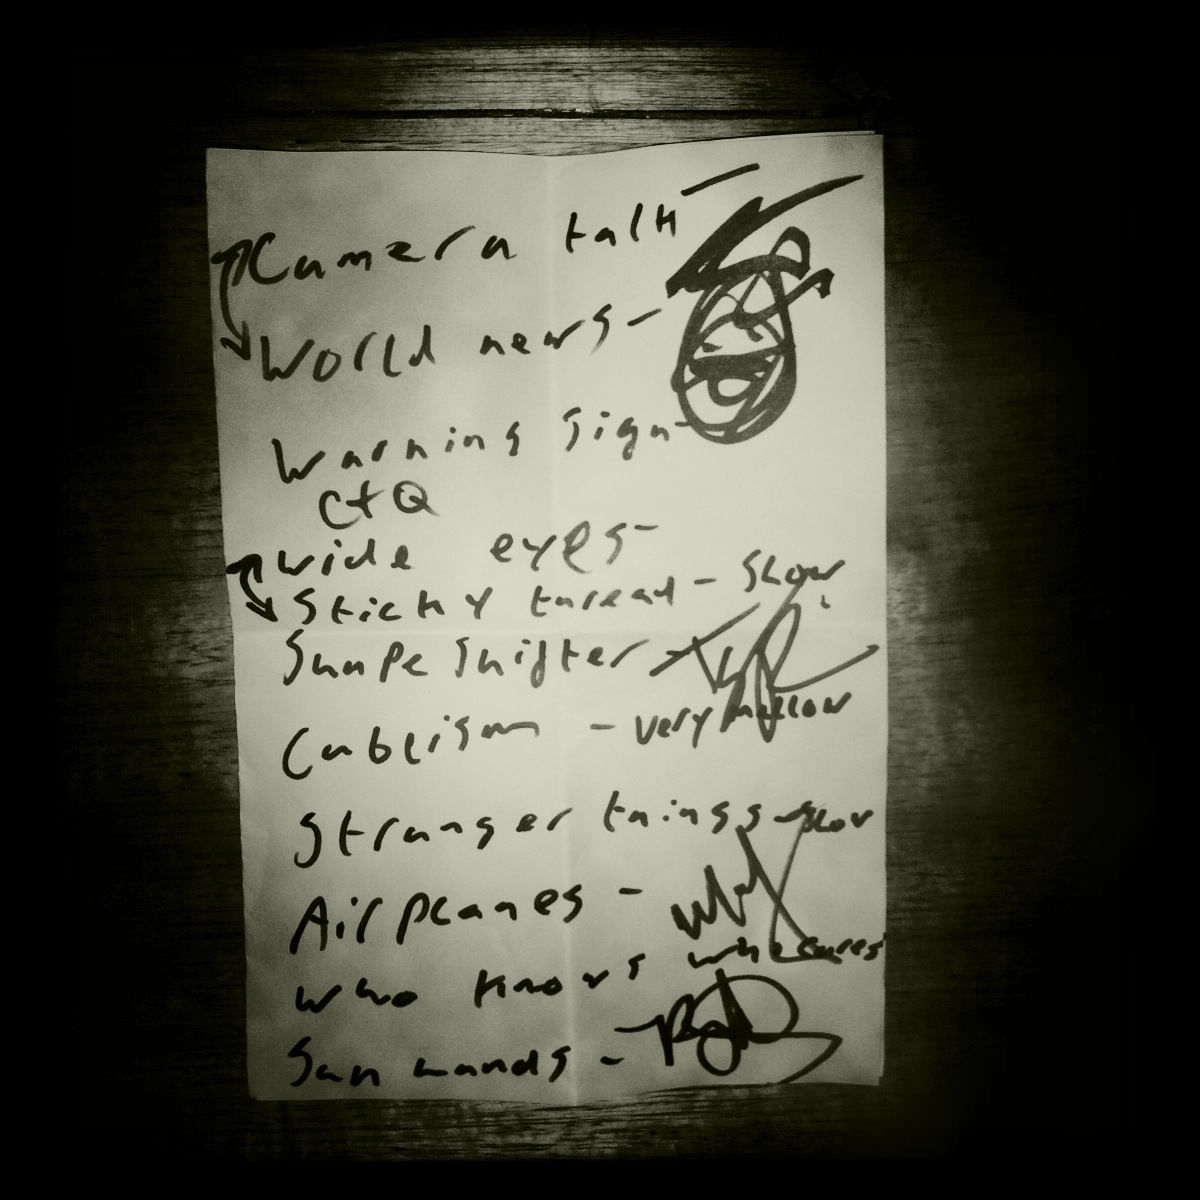 Camera talk -
World news -
Warning sign -
C + Q
wide eyes -
Sticky thread - Slow
Shape Shifter -
Cubism - very mellow
Stranger things - Slow
Airplanes -
who knows who cares
Sun hands -